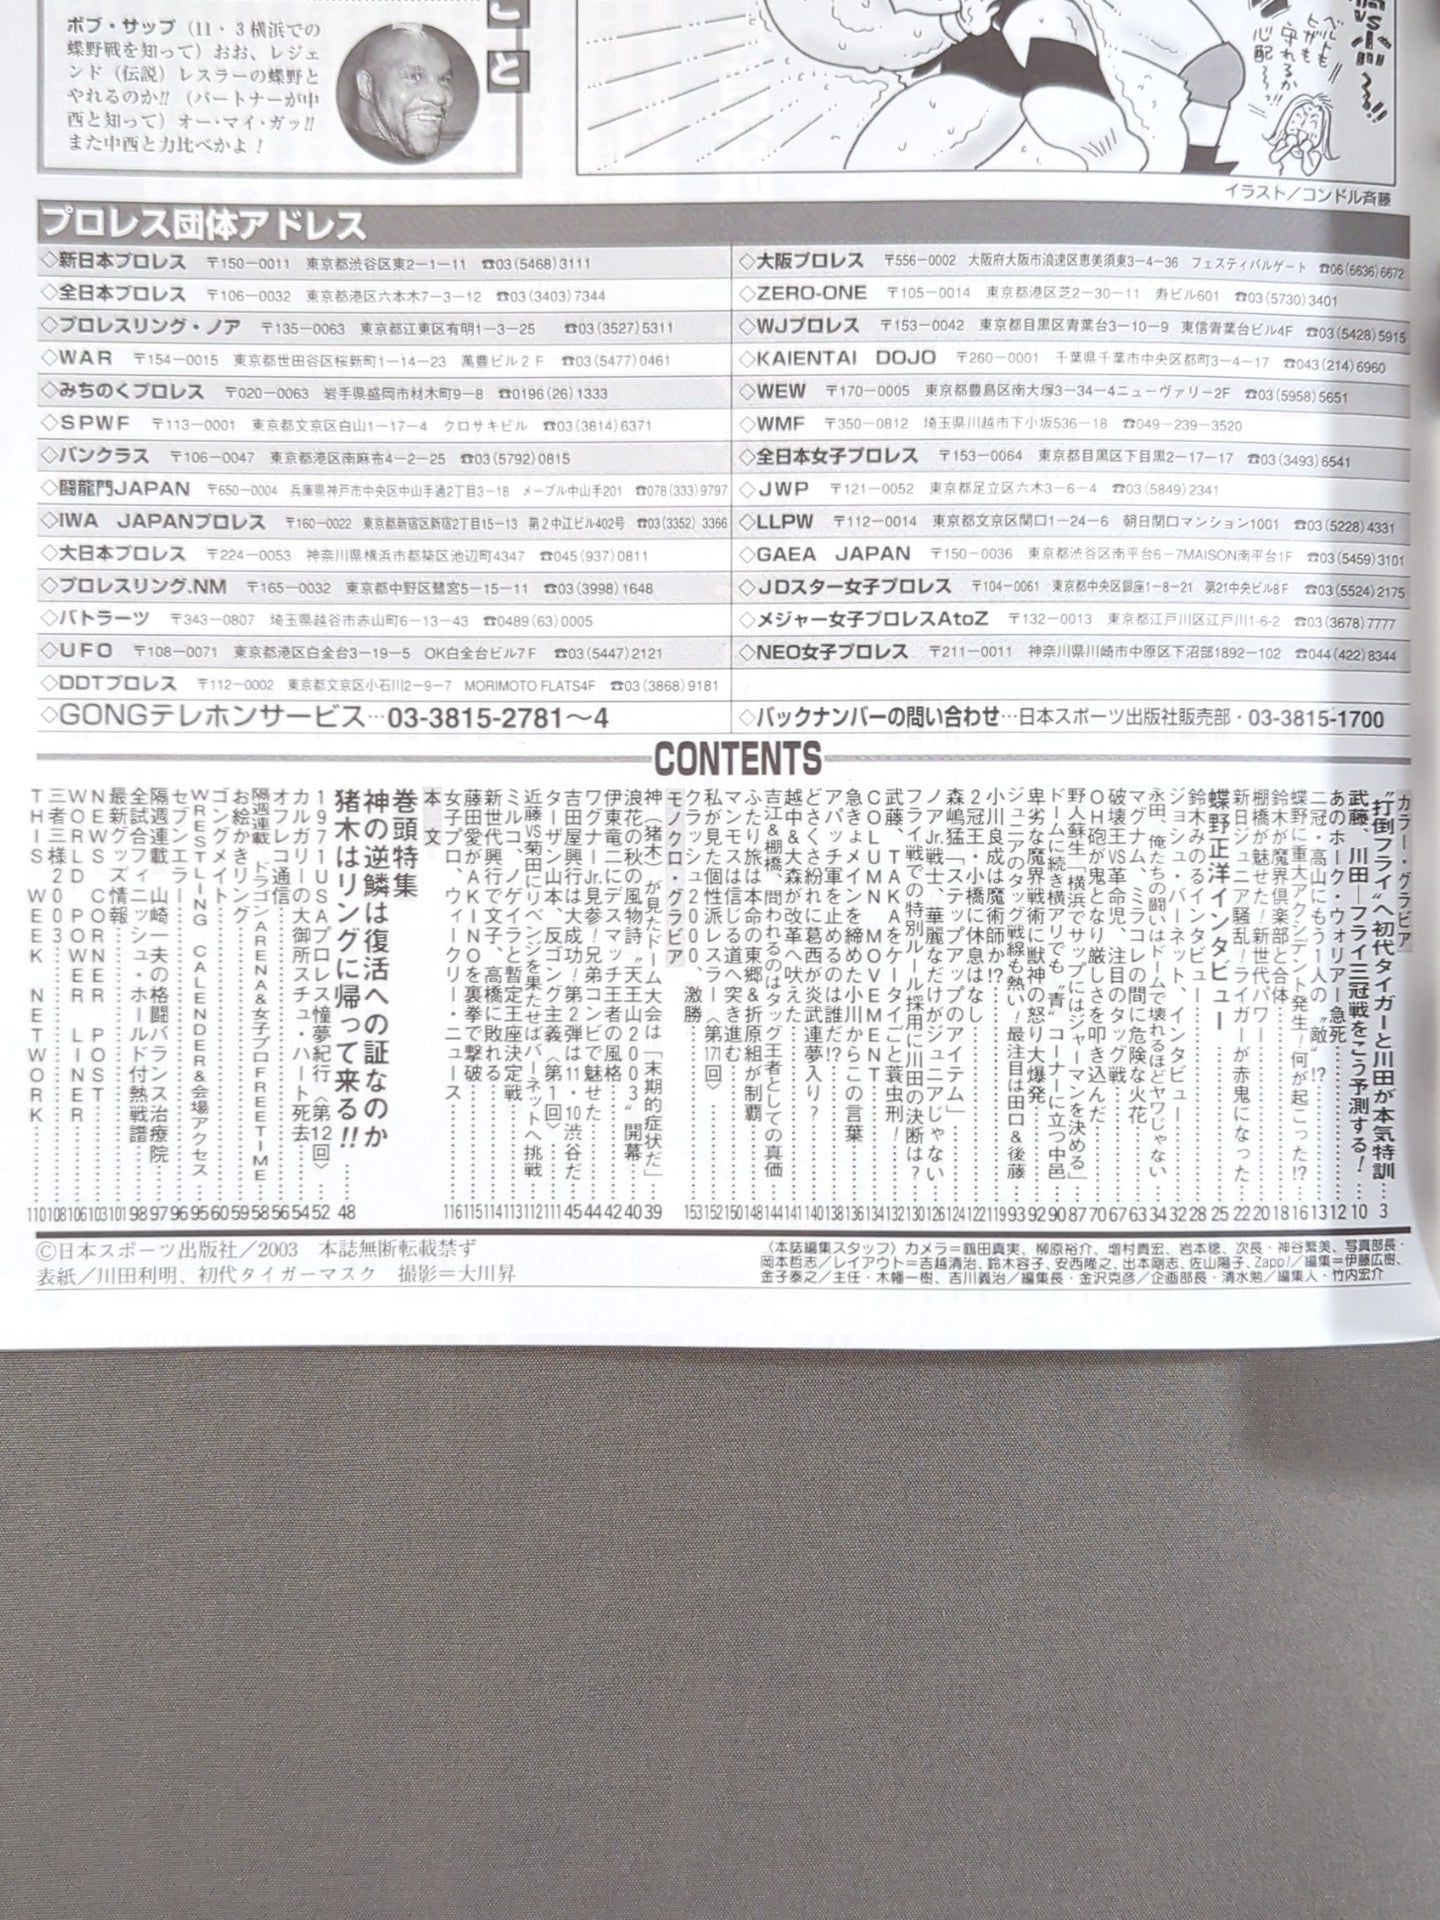 こと
ボブ・サップ（11・3横浜での
蝶野戦を知って）おお、レジェ
ンド（伝説）レスラーの蝶野と
やれるのか!!（パートナーが中
西と知って）オー・マイ・ガッ!!
また中西と力比べかよ！
ベルトも
とがも
守れるか
心配〜〜!!
イラスト／コンドル斉藤
プロレス団体アドレス
◇新日本プロレス 〒150-0011 東京都渋谷区東2-1-11 ☎03(5468)3111
◇全日本プロレス 〒106-0032 東京都港区六本木7-3-12 ☎03(3403)7344
◇プロレスリング・ノア 〒135-0063 東京都江東区有明1-3-25 ☎03(3527)5311
◇WAR 〒154-0015 東京都世田谷区桜新町1-14-23 萬豊ビル2F ☎03(5477)0461
◇みちのくプロレス 〒020-0063 岩手県盛岡市材木町9-8 ☎0196(26)1333
◇SPWF 〒113-0001 東京都文京区白山1-17-4 クロサキビル ☎03(3814)6371
◇パンクラス 〒106-0047 東京都港区南麻布4-2-25 ☎03(5792)0815
◇闘龍門JAPAN 〒650-0004 兵庫県神戸市中央区中山手通2丁目3-18 メープル中山手201 ☎078(333)9797
◇IWA JAPANプロレス 〒160-0022 東京都新宿区新宿2丁目15-13 第2中江ビル402号 ☎03(3352)3366
◇大日本プロレス 〒224-0053 神奈川県横浜市都築区池辺町4347 ☎045(937)0811
◇プロレスリング.NM 〒165-0032 東京都中野区鷺宮5-15-11 ☎03(3998)1648
◇バトラーツ 〒343-0807 埼玉県越谷市赤山町6-13-43 ☎0489(63)0005
◇UFO 〒108-0071 東京都港区白金台3-19-5 OK白金台ビル7F ☎03(5447)2121
◇DDTプロレス 〒112-0002 東京都文京区小石川2-9-7 MORIMOTO FLATS4F ☎03(3868)9181
◇GONGテレホンサービス…03-3815-2781〜4
◇大阪プロレス 〒556-0002 大阪府大阪市浪速区恵美須東3-4-36 フェスティバルゲート ☎06(6636)6672
◇ZERO-ONE 〒105-0014 東京都港区芝2-30-11 寿ビル601 ☎03(5730)3401
◇WJプロレス 〒153-0042 東京都目黒区青葉台3-10-9 東信青葉台ビル4F ☎03(5428)5915
◇KAIENTAI DOJO 〒260-0001 千葉県千葉市中央区都町3-4-17 ☎043(214)6960
◇WEW 〒170-0005 東京都豊島区南大塚3-34-4ニューヴァリー2F ☎03(5958)5651
◇WMF 〒350-0812 埼玉県川越市下小坂536-18 ☎049-239-3520
◇全日本女子プロレス 〒153-0064 東京都目黒区下目黒2-17-17 ☎03(3493)6541
◇JWP 〒121-0052 東京都足立区六木3-6-4 ☎03(5849)2341
◇LLPW 〒112-0014 東京都文京区関口1-24-6 朝日関口マンション1001 ☎03(5228)4331
◇GAEA JAPAN 〒150-0036 東京都渋谷区南平台6-7MAISON南平台1F ☎03(5459)3101
◇JDスター女子プロレス 〒104-0061 東京都中央区銀座1-8-21 第21中央ビル8F ☎03(5524)2175
◇メジャー女子プロレスAtoZ 〒132-0013 東京都江戸川区江戸川1-6-2 ☎03(3678)7777
◇NEO女子プロレス 〒211-0011 神奈川県川崎市中原区下沼部1892-102 ☎044(422)8344
◇バックナンバーの問い合わせ…日本スポーツ出版社販売部・03-3815-1700
CONTENTS
カラー・グラビア
“打倒フライ”へ初代タイガーと川田が本気特訓…3
武藤、川田—フライ三冠戦をこう予測する！…10
あのホーク・ウォリアー急死…12
二冠・高山にもう1人の“敵”!?…13
蝶野に重大アクシデント発生！何が起こった!?…16
鈴木が魔界倶楽部と合体…18
棚橋が魅せた！新世代パワー…20
新日ジュニア騒乱！ライガーが赤鬼になった…22
蝶野正洋インタビュー…25
鈴木みのるインタビュー…28
ジョシュ・バーネット、インタビュー…32
永田、俺たちの闘いはドームで壊れるほどヤワじゃない…34
マグナム、ミラコレの間に危険な火花…63
破壊王VS革命児、注目のタッグ戦…67
OH砲が鬼となり厳しさを叩き込んだ…70
野人蘇生「横浜でサップにはジャーマンを決める」…87
ドームに続き横アリでも“青”コーナーに立つ中邑…90
卑劣な魔界戦術に獣神の怒り大爆発…92
ジュニアのタッグ戦線も熱い！最注目は田口＆後藤…93
小川良成は魔術師か!?…119
2冠王・小橋に休息はなし…122
森嶋猛「ステップアップのアイテム」…124
ノアJr.戦士、“華麗なだけがジュニアじゃない…126
フライ戦での特別ルール採用に川田の決断は？…130
武藤、TAKAをケータイごと蓑虫刑！…132
COLUMN MOVEMENT…134
急きょメインを締めた小川からこの言葉…136
アパッチ軍を止めるのは誰だ!?…138
どさくさ紛れに葛西が炎武連夢入り？…140
越中＆大森が改革へ吠えた…141
吉江＆棚橋、問われるのはタッグ王者としての真価…144
ふたり旅は本命の東郷＆折原組が制覇…148
マンモスは信じる道へ突き進む…150
私が見た個性派レスラー〈第171回〉…152
クラッシュ2000、激勝…153
モノクロ・グラビア
神（猪木）が見たドーム大会は「末期的症状だ」…39
浪花の秋の風物詩“天王山2003”開幕…40
伊東竜二にデスマッチ王者の風格…42
ワグナーJr.見参！兄弟コンビで魅せた…44
吉田屋興行は大成功！第2弾は11・10渋谷だ…45
ターザン山本、反ゴング主義〈第1回〉…111
近藤VS菊田にリベンジを果たせばバーネットへ挑戦…112
ミルコ、ノゲイラと暫定王座決定戦…113
新世代興行で文子、高橋に敗れる…114
藤田愛がAKINOを裏拳で撃破…115
女子プロ、ウィークリー・ニュース…116
本文
巻頭特集
神の逆鱗は復活への証なのか
猪木はリングに帰って来る!!…48
1971USAプロレス憧夢紀行〈第12回〉…52
カルガリーの大御所スチュ・ハート死去…54
オフレコ通信…56
隔週連載 ドラゴンARENA＆女子プロFREETIME…58
お絵かきリング…59
ゴングメイト…60
WRESTLING CALENDER＆会場アクセス…95
セブンエラー…96
隔週連載 山崎一夫の格闘バランス治療院…97
全試合フィニッシュ・ホールド付熱戦譜…98
最新グッズ情報…101
NEWS CORNER POST…103
WORLD POWER LINER…106
三者三様2003…108
THIS WEEK NETWORK…110
©日本スポーツ出版社／2003 本誌無断転載禁ず
表紙／川田利明、初代タイガーマスク 撮影＝大川昇
〈本誌編集スタッフ〉カメラ＝鶴田真実、柳原裕介、増村貴宏、岩本稔、次長・神谷繁美、写真部長・
岡本哲志／レイアウト＝吉越清治、鈴木容子、安西隆之、出本剛志、佐山陽子、Zapp!／編集＝伊藤広樹、
金子泰之／主任・木幡一樹、吉川義治／編集長・金沢克彦／企画部長・清水勉／編集人・竹内宏介